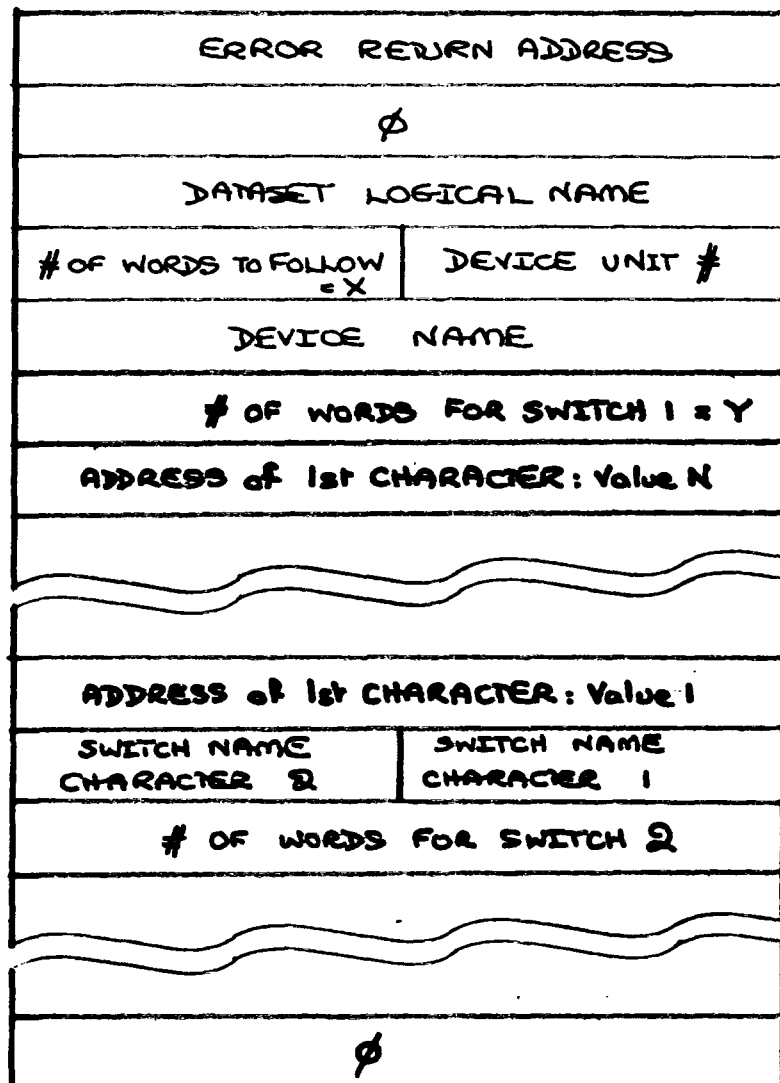 ERROR RETURN ADDRESS
Ø
DATASET LOGICAL NAME
# OF WORDS TO FOLLOW
= X
DEVICE UNIT #
DEVICE NAME
# OF WORDS FOR SWITCH 1 = Y
ADDRESS of 1st CHARACTER: Value N
ADDRESS of 1st CHARACTER: Value 1
SWITCH NAME
CHARACTER 2
SWITCH NAME
CHARACTER 1
# OF WORDS FOR SWITCH 2
Ø